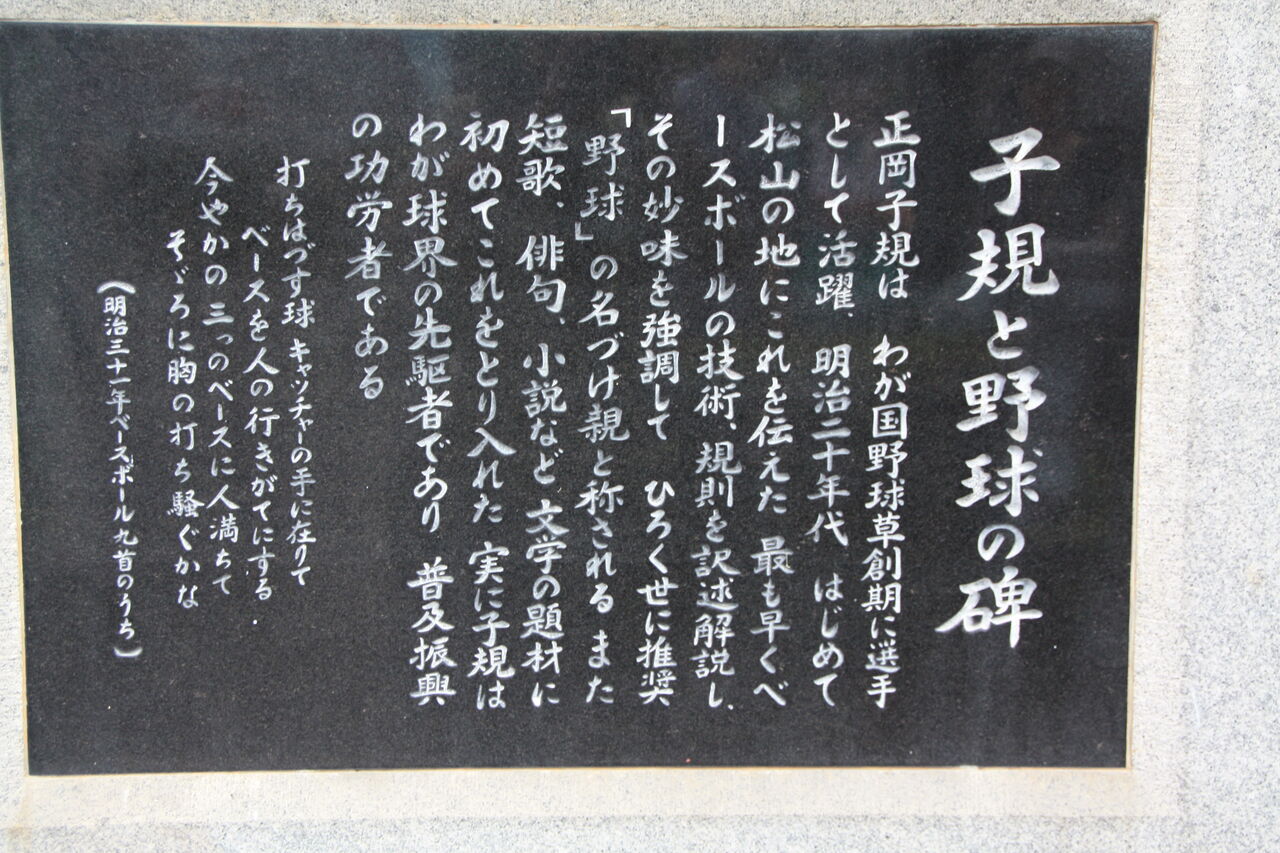 子規と野球の碑
正岡子規は　わが国野球草創期に選手
として活躍、明治二十年代、はじめて
松山の地にこれを伝えた　最も早くベ
ースボールの技術、規則を訳述解説し、
その妙味を強調して　ひろく世に推奨
「野球」の名づけ親と称される　また
短歌、俳句、小説など、文学の題材に
初めてこれをとり入れた　実に子規は
わが球界の先駆者であり　普及振興
の功労者である
打ちはづす球　キャッチャーの手に在りて
ベースを人の行きがてにする
今やかの三つのベースに人満ちて
そゞろに胸の打ち騒ぐかな
（明治三十一年ベースボール九首のうち）